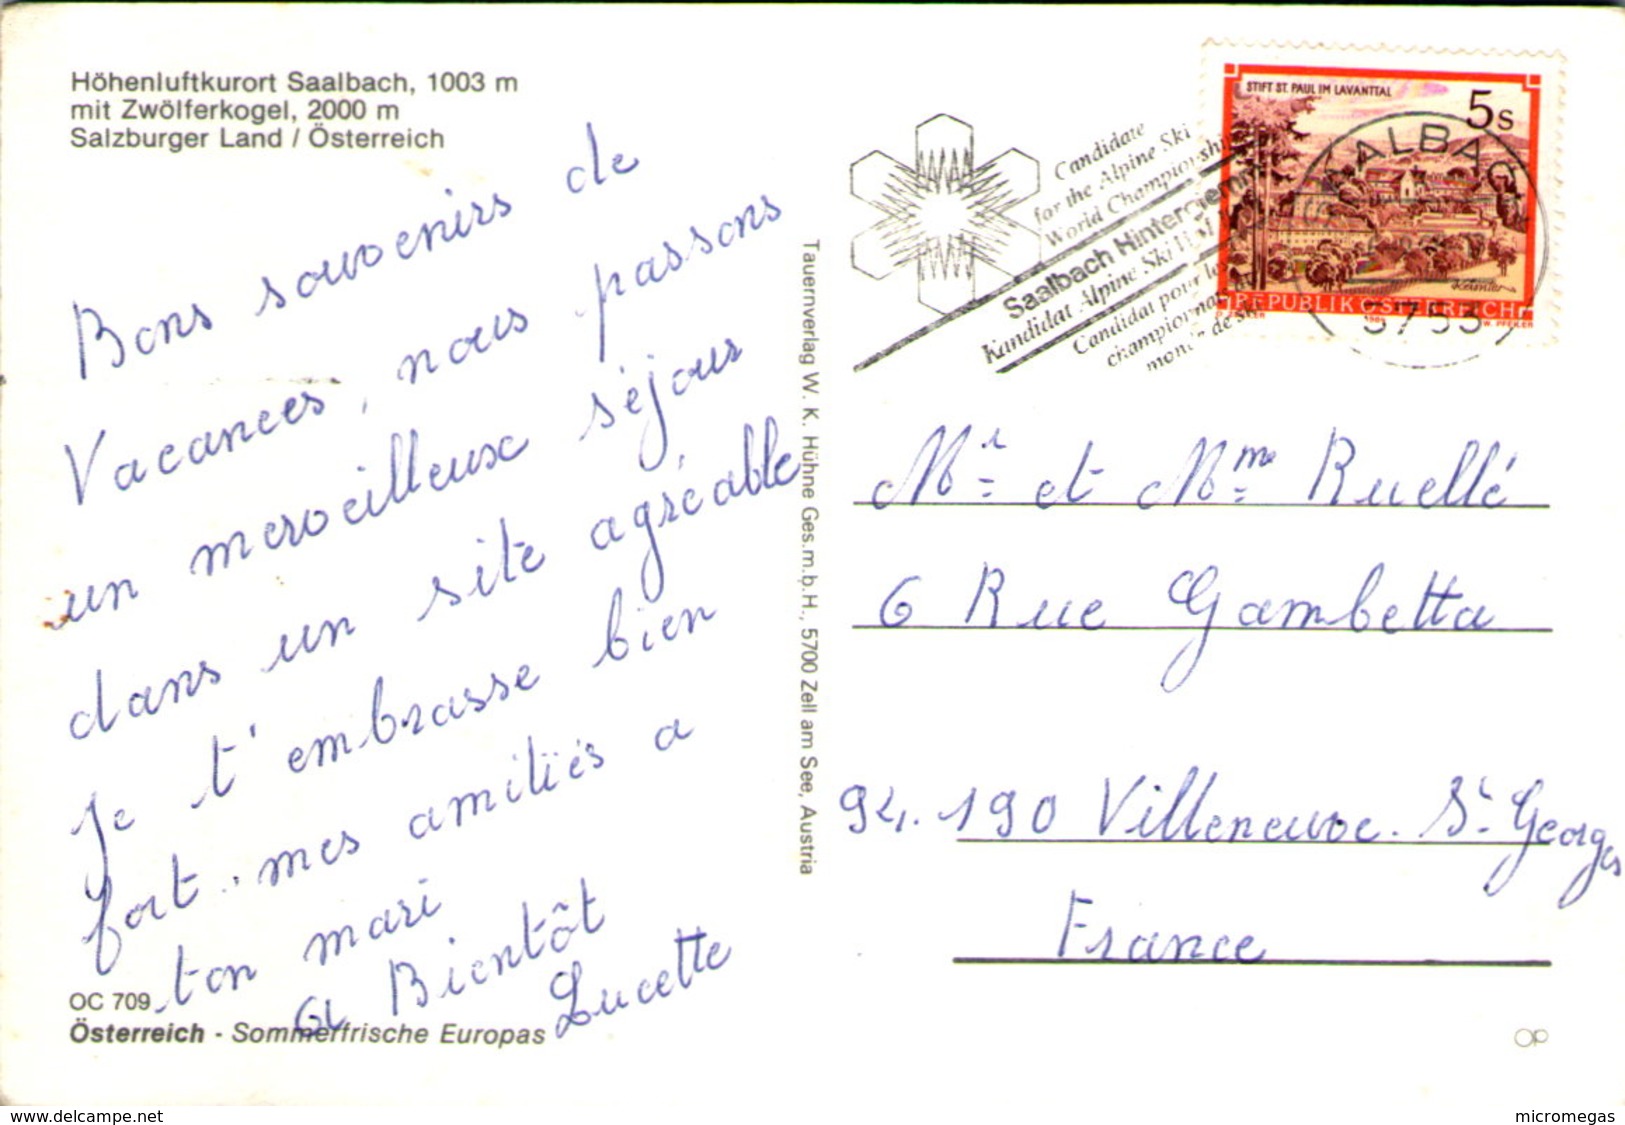 Höhenluftkurort Saalbach, 1003 m
mit Zwölferkogel, 2000 m
Salzburger Land / Österreich
Bons souvenirs de
Vacances, nous passons
un merveilleux séjour
dans un site agréable
Je t'embrasse bien
fort. mes amitiés a
ton mari
a Bientôt
Lucette
OC 709
Österreich - Sommerfrische Europas
Tauernverlag W. K. Hühne Ges.m.b.H., 5700 Zell am See, Austria
Candidate
for the Alpine Ski
World Championship
Saalbach Hinterglemm
Kandidat Alpine Ski
Candidat pour les
championnats
STIFT ST. PAUL IM LAVANTTAL
5s
REPUBLIK ÖSTERREICH
1985
W. PFEILER
SAALBACH
5753
Mr et Mme Ruellé
6 Rue Gambetta
94.190 Villeneuve. St Georges
France
OP
www.delcampe.net
micromegas